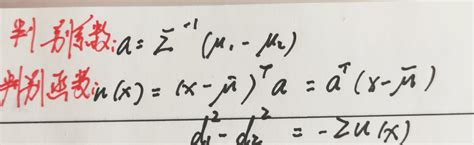 判别系数:a = Σ⁻¹(μ₁ - μ₂)
判别函数:u(x) = (x - μ̄)ᵀa = aᵀ(x - μ̄)
d₁² - d₂² = -2u(x)